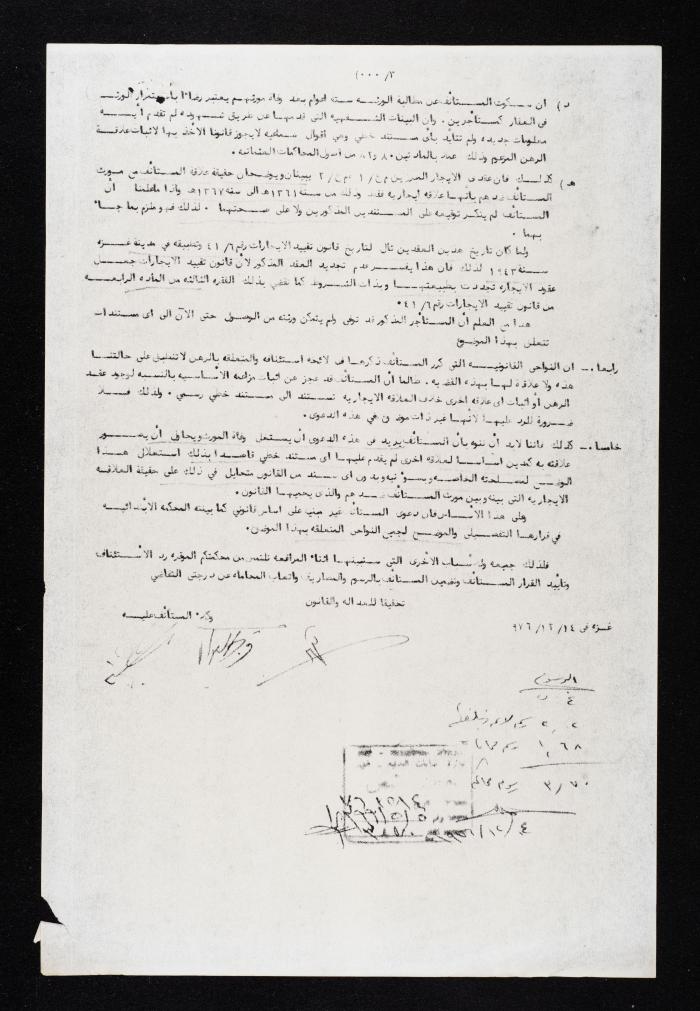 ٣/ ٠٠٠)
د) أن سكوت المستأنف عن مطالبة الورثة ستة أعوام بعد وفاة مورثهم يعتبر رضاءا بأستمرار الورثة
في العقار كمستأجرين. وأن البينات الشفهية التي قدمها عن طريق شهوده لم تقدم أية
معلومات جديدة ولم تتأيد بأى مستند خطي وهي أقوال سماعية لايجوز قانونا الأخذ بها لاثبات علاقة
الرهن المزعوم وذلك عملا بالمادتين ٨٠ و ٨٢ من أصول المحاكمات العثمانية.
هـ) كذلك فان عقدى الايجار المبرزين م ع/ ١ م ع/ ٢ يبينان ويوضحان حقيقة علاقة المستأنف من مورث
المستأنف ضدهم بأنها علاقة أيجارية فقط وذلك من سنة ١٣٦١هـ الى سنة ١٣٦٧هـ واذا ماعلمنا أن
المستأنف لم ينكر توقيعه على المستندين المذكورين ولا على صحتهما. لذلك فهو ملزم بما جاء
بهما.
ولما كان تاريخ هذين العقدين تال لتاريخ قانون تقييد الايجارات رقم ٤١/٦ وتطبيقه في مدينة غزة
سنة ١٩٤٣ لذلك فان هذا يفسر عدم تجديد العقد المذكور لأن قانون تقييد الايجارات جعل
عقود الايجارة تجدد بطبيعتها وبذات الشروط كما تقضي بذلك الفقرة الثالثة من المادة الرابعة
من قانون تقييد الايجارات رقم ٤١/٦.
هذا مع العلم أن المستأجر المذكور قد توفى ولم يتمكن ورثته من الوصول حتى الآن الى أى مستندات
تتعلق بهذا الموضوع
رابعا.- ان النواحي القانونية التي كرر المستأنف ذكرها في لائحة استئنافه والمتعلقة بالرهن لاتنطبق على حالتنا
هذه ولا علاقة لها بهذه القضية. طالما أن المستأنف قد عجز عن اثبات مزاعمه الأساسية بالنسبة لوجود عقد
الرهن أو اثبات أى علاقة اخرى خلاف العلاقة الايجارية تستند الى مستند خطي رسمي. ولذلك فلا
ضرورة للرد عليها لأنها غير ذات موضوع في هذه الدعوى.
خامسا.- كذلك فاننا لابد أن ننوه بأن المستأنف يريد في هذه الدعوى أن يستغل وفاة المورث ويحاول أن يصور
علاقته به كمدين أساسا لعلاقة اخرى لم يقدم عليها أى مستند خطي قاصدا بذلك استغلال هذا
الوضع لمصلحته الخاصة وبسوء نية وبدون أى سند من القانون متحايل في ذلك على حقيقة العلاقة
الايجارية التي بينه وبين مورث المستأنف ضدهم والذى يحميها القانون.
وعلى هذا الأساس فان دعوى المستأنف غير مبنية على أساس قانوني كما بينته المحكمة الابتدائية
في قرارها التفصيلي والموضح لجميع النواحي المتعلقة بهذا الموضوع.
فلذلك جميعه ولأسباب الأخرى التي سنبينها اثناء المرافعة نلتمس من محكمتكم الموقرة رد الاستئناف
وتأييد القرار المستأنف وتضمين المستأنف بالرسوم والمصاريف وأتعاب المحاماة عن درجتي التقاضي
تحقيقا للعدالة والقانون
غزة في ١٤/ ١٢/ ٩٧٦
وكلاء المستأنف عليه
الرسوم
٢,٠٢
١,٦٨
٣/٧٠ رسوم محاكم